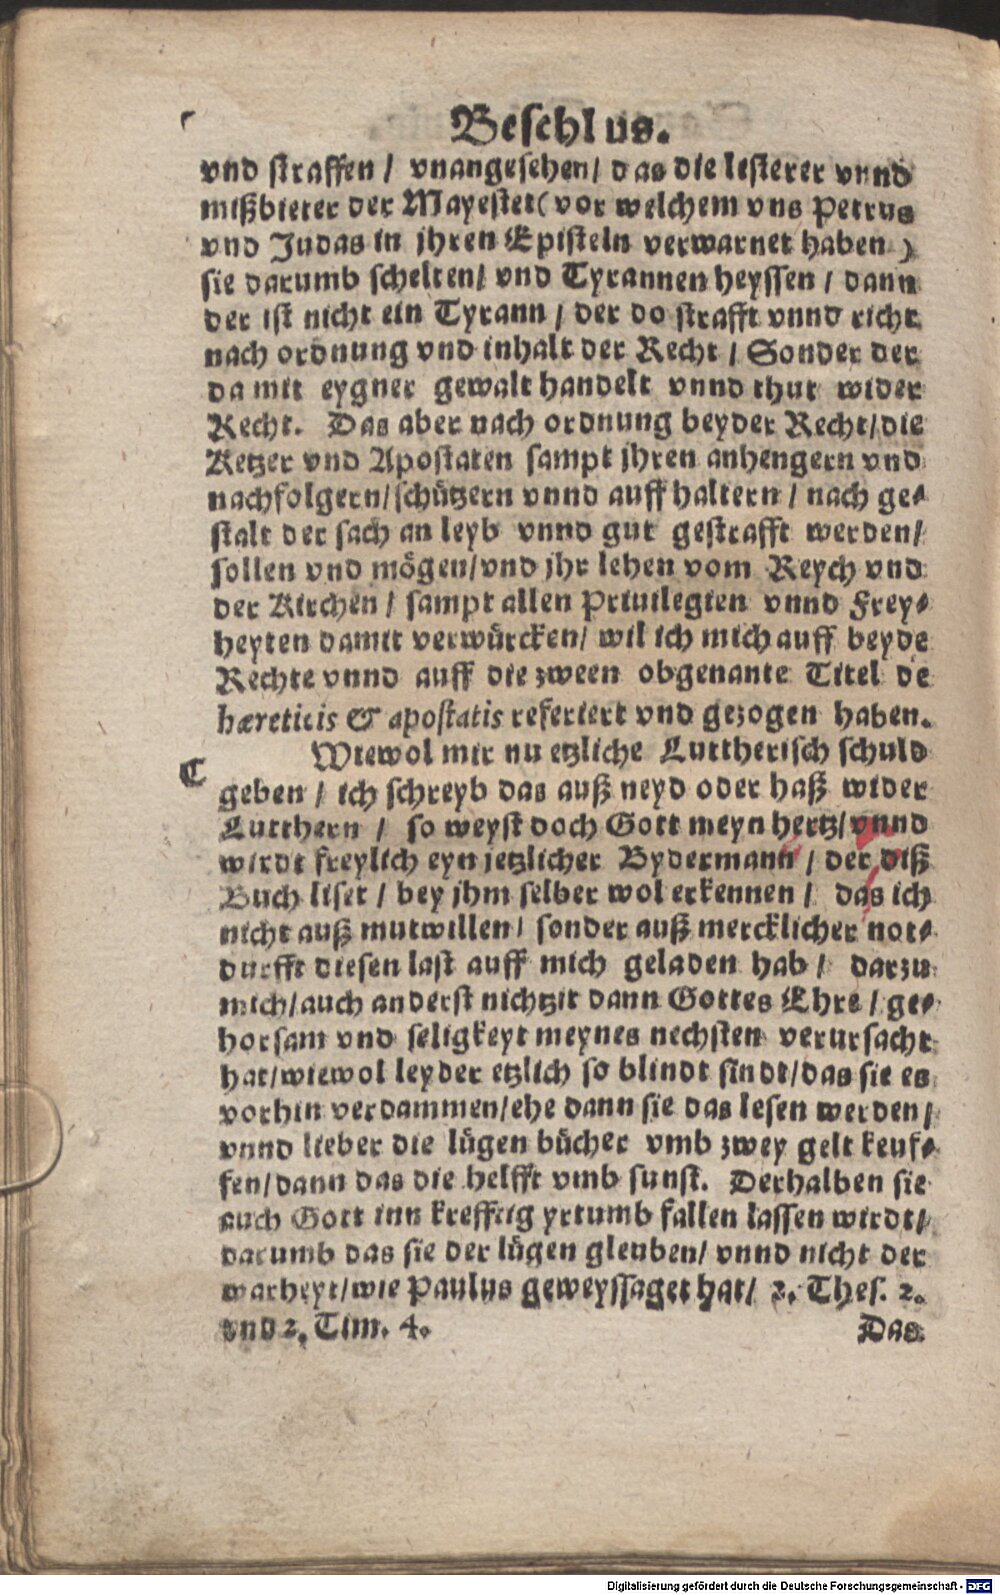 Beschlus.
vnd straffen / vnangesehen / das die lesterer vnnd
mißbieter der Mayestet ( vor welchem vns Petrus
vnd Judas in jhren Episteln verwarnet haben )
sie darumb schelten / vnd Tyrannen heyssen / dann
der ist nicht ein Tyrann / der do strafft vnnd richt
nach ordnung vnd inhalt der Recht / Sonder der
da mit eygner gewalt handelt vnnd thut wider
Recht. Das aber nach ordnung beyder Recht / die
Ketzer vnd Apostaten sampt jhren anhengern vnd
nachfolgern / schützern vnnd auff haltern / nach ge⸗
stalt der sach an leyb vnnd gut gestrafft werden /
sollen vnd mögen / vnd jhr lehen vom Reych vnd
der Kirchen / sampt allen Priuilegien vnnd Frey⸗
heyten damit verwürcken / wil ich mich auff beyde
Rechte vnnd auff die zween obgenante Titel de
hæreticis & apostatis referiert vnd gezogen haben.
Wiewol mir nu etzliche Luttherisch schuld
C
geben / ich schreyb das auß neyd oder haß wider
Lutthern / so weyst doch Gott meyn hertz / vnnd
wirdt freylich eyn jetzlicher Bydermann / der diß
Buch liset / bey jhm selber wol erkennen / das ich
nicht auß mutwillen / sonder auß mercklicher not⸗
durfft diesen last auff mich geladen hab / darzu
mich / auch anderst nichtzit dann Gottes Ehre / ge⸗
horsam vnd seligkeyt meynes nechsten verursacht
hat / wiewol leyder etzlich so blindt sindt / das sie es
vorhin verdammen / ehe dann sie das lesen werden /
vnnd lieber die lügen bücher vmb zwey gelt keuf⸗
fen / dann das die helfft vmb sunst. Derhalben sie
auch Gott inn krefftig yrtumb fallen lassen wirdt /
darumb das sie der lügen gleuben / vnnd nicht der
warheyt / wie Paulus geweyssaget hat / 2. Thes. 2.
vnd 2. Tim. 4.
Das
Digitalisierung gefördert durch die Deutsche Forschungsgemeinschaft - DFG